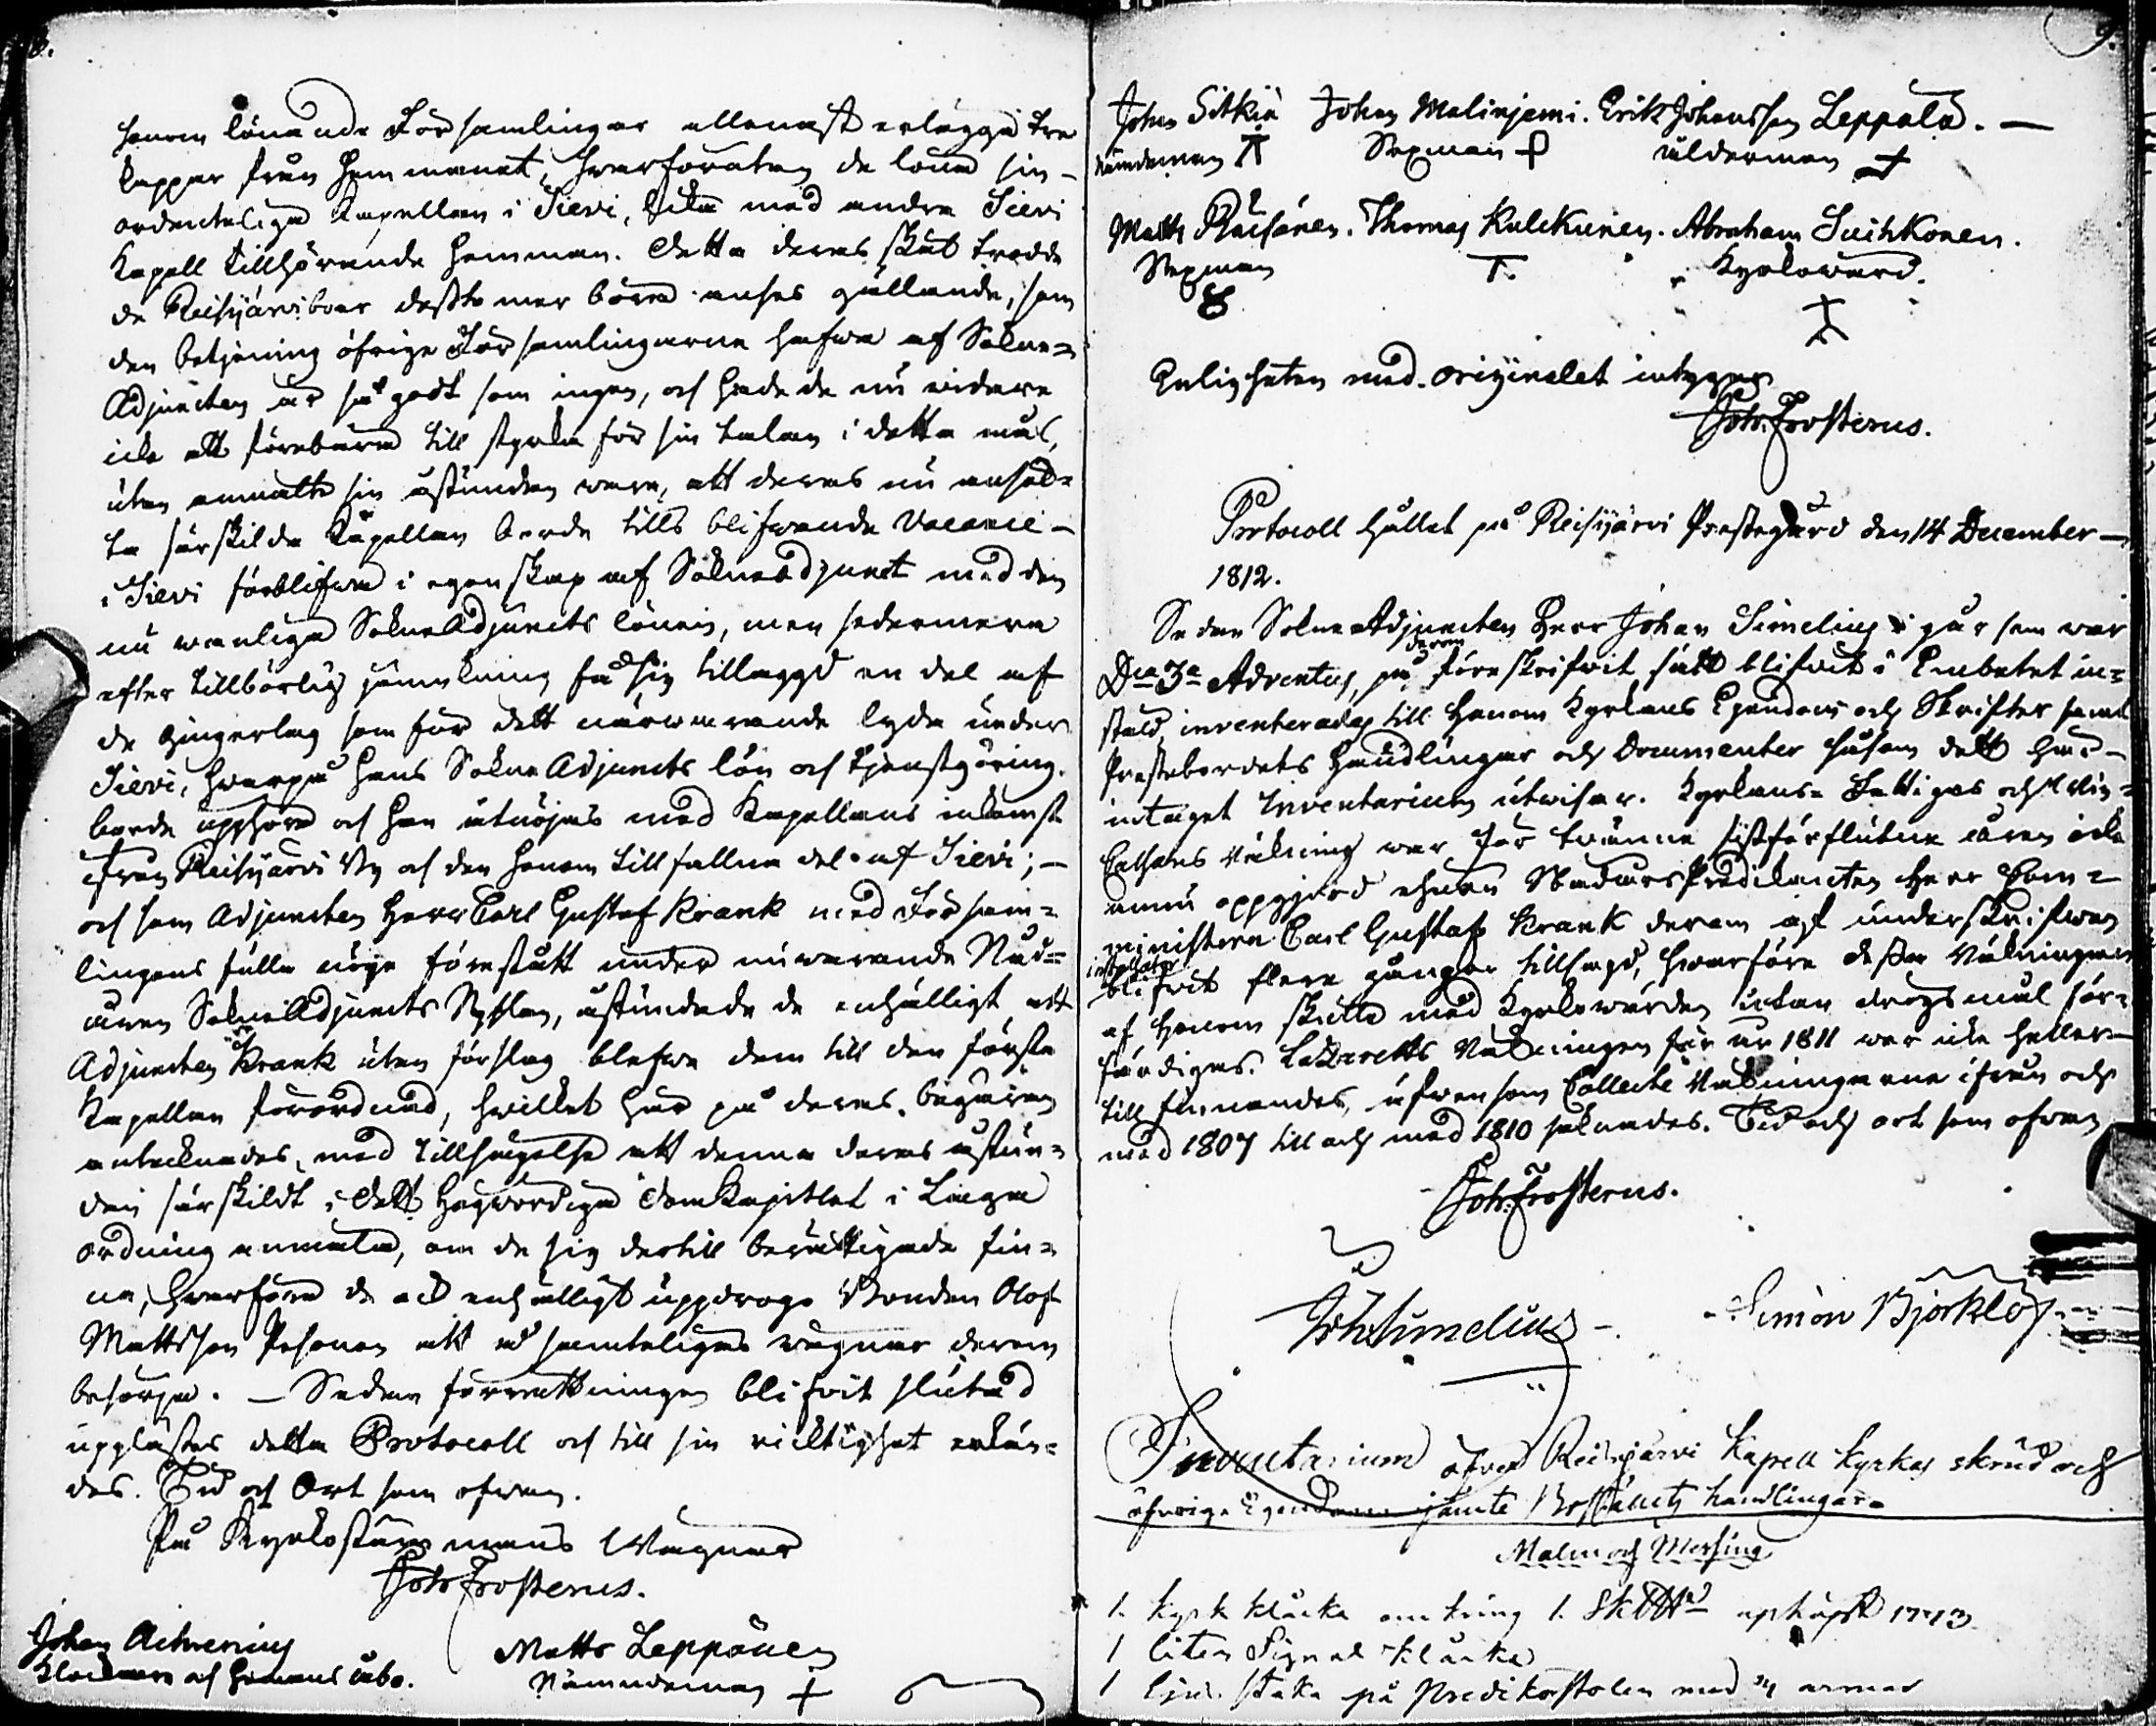 8.
honom lönande Församlingar allenast erlägga tre
kappar från Hemmanet, hvarförutan de löna sin
ordentelige Kapellan i Sievi, lika med andra Sievi
Kapell tillhörande Hemman. Detta deras skäl trodde
de Reisjärviboer desto mer böra anses gällande, som
den betjening öfrige Församlingarne hafva af Sokne-
Adjuncten är så godt som ingen, och hade de nu vidare
icke att förebära till styrka för sin talan i detta mål,
utan anmälte sin åstundan vara, att deras nu anhåll-
ta särskilde Kapellan borde tills blifvande Vacance
i Sievi förblifva i egenskap af SokneAdjunct med den
nu vanliga SokneAdjuncts lönen, men sedermera
efter tillbörlig jämkning få sig tillaggd en del af
de Gingerlag som för dett närvarande lyda under
Sievi, hvarpå hans SokneAdjuncts lön och tjenstgöring
borde upphöra och han åtnöjas med Kapellans inkomst
ifrån Reisjärvi By och den honom tillfallna del af Sievi;
och som Adjuncten Herr Carl Gustaf Krank med Försam-
lingens fulla nöje förestått under nuvarande Nåd-
åren SokneAdjuncts Sysslan, åstundade de enhälligt att
Adjuncten Hr Krank utan förslag blefve dem till den första
Kapellan förordnad, hvilket här på deras begäran
antecknades, med tillsägelse att denna deras åstun-
dan särskildt i Dett Högvördiga DomKapitlet i Laga
ordning anmäla, om de sig dertill berättigade fin-
na, hvarföre de ock enhälligt uppdrogo Bonden Olof
Mattsson Pesonen att å samteliges vägnar derom
besörja. — Sedan förrättningen blifvit slutad
upplästes detta Protocoll och till sin riktighet erkän-
des. Tid och Ort som ofvan.
På Kyrkostämmans Wägnar
Joh: Frosterus.
Johan Achrenius Matts Leppänen
Klockare och Hemmans åbo. Nämndeman
9.
Johan Sitkiä Johan Malinjemi. Erik Johansson Leppälä.
Nämdeman Sexman ålderman
Matts Räisänen. Thomas Kulckunen. Abraham Suihkonen.
Sexman Kyrkovärd.
Enligheten med originalet intygar
Joh: Frosterus.
Protocoll hållet på Reisjärvi Prestegård den 14 December
1812.
Sedan SokneAdjuncten Herr Johan Simelius i går som var
Dca 3a Adventus, på derom föreskrifvit sätt blifvit i Embetet in-
stäld, inventerades till honom Kyrkans Egendom och Skrifter samt
Prestebordets Handlingar och Documenter såsom dett här
intaget Inventarium utvisar. Kyrkans- Fattigas och Vin-
Cassans räkning var för tvänne sistförflutne åren icke
ännu oppgjord ehuru NådårsPredikanten Herr Com-
ministern Carl Gustaf Krank derom af underskrifven
blifvit flere gånger tillsagd, hvarföre desse räkningar
af honom skulle med Kyrkovärden utan drögsmål för-
färdigas. Lazaretts Räkningen för år 1811 var icke heller
till finnandes, äfven som Collecte Räkningarne ifrån och
med 1807 till och med 1810 saknades. Tid och ort som ofvan
Joh: Frosterus.
Joh Simelius Simon Björklöf
Inventarium öfver Reisjärvi Kapell kyrkas skrud och
öfvrige Egendom jämte Boställets handlingar.
Malm och Messing
1. Kyrk klåcka omkring 1. Sk℔ upköpt 1773
1 liten Signal klåcka
1 ljus staka på Predikostolen med armar